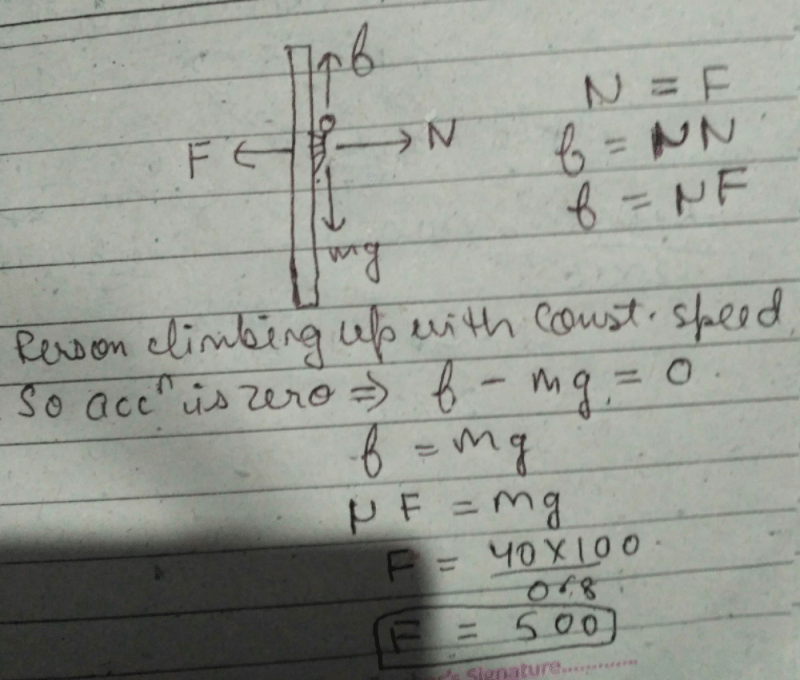 f
F
N
mg
N = F
f = μN
f = μF
Person climbing up with const. speed
So accⁿ is zero ⇒ f - mg = 0
f = mg
μF = mg
F = 40×100
0.8
F = 500
Signature.............